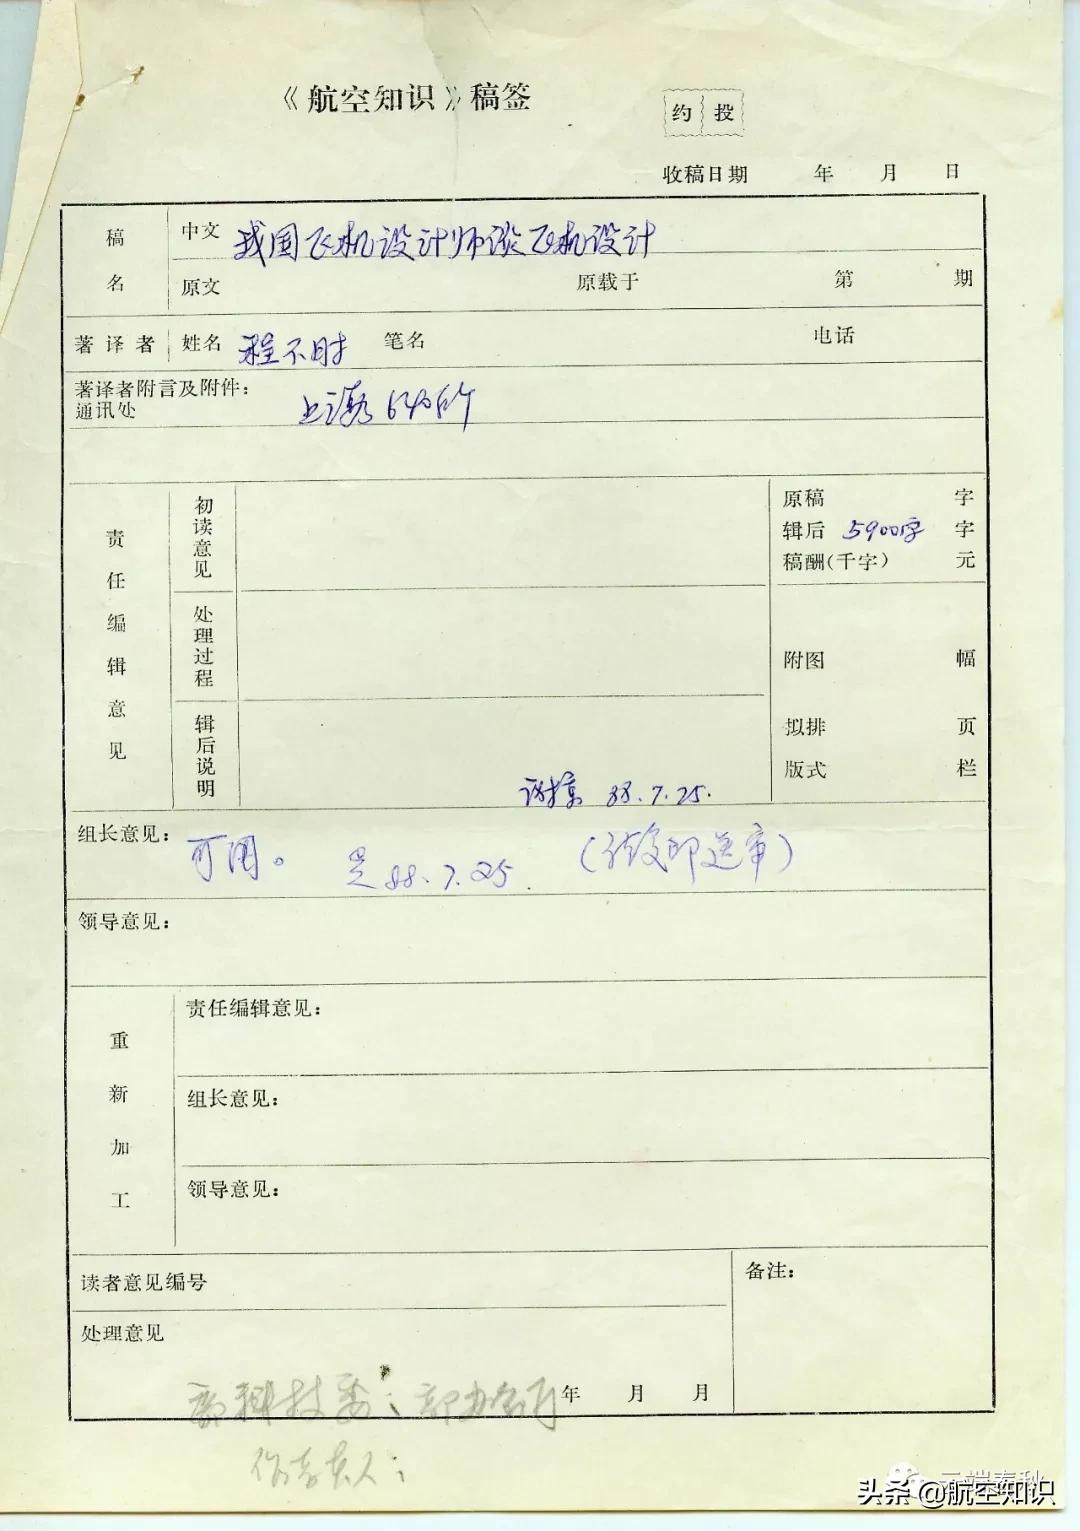 《航空知识》稿签
约 投
收稿日期 年 月 日
稿名
中文 我国飞机设计师谈飞机设计
原文 原载于 第 期
著译者 姓名 程不时 笔名 电话
著译者附言及附件：
通讯处 上海640所
责任编辑意见
初读意见
处理过程
辑后说明
原稿 字
辑后 5900字 字
稿酬(千字) 元
附图 幅
拟排 页
版式 栏
谢础 88.7.25.
组长意见： 可用。 88.7.25. 即送审）
领导意见：
重新加工
责任编辑意见：
组长意见：
领导意见：
读者意见编号
备注：
处理意见
部科技委：
年 月 月
负责人：
头条 @航空知识